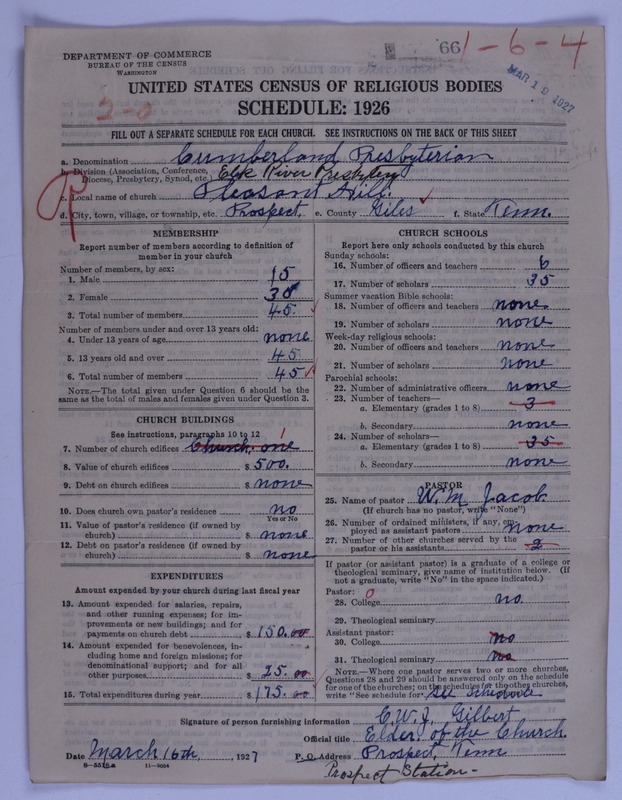 66 1-6-4
DEPARTMENT OF COMMERCE
BUREAU OF THE CENSUS
WASHINGTON
MAR 19 1927
UNITED STATES CENSUS OF RELIGIOUS BODIES
SCHEDULE: 1926
FILL OUT A SEPARATE SCHEDULE FOR EACH CHURCH. SEE INSTRUCTIONS ON THE BACK OF THIS SHEET
a. Denomination Cumberland Presbyterian
b. Division (Association, Conference, Diocese, Presbytery, Synod, etc.) Elk River Presbytery
c. Local name of church Pleasant Hill
d. City, town, village, or township, etc. Prospect. e. County Giles f. State Tenn.
MEMBERSHIP
Report number of members according to definition of
member in your church
Number of members, by sex:
1. Male 15
2. Female 30
3. Total number of members 45.
Number of members under and over 13 years old:
4. Under 13 years of age none
5. 13 years old and over 45
6. Total number of members 45
NOTE.—The total given under Question 6 should be the
same as the total of males and females given under Question 3.
CHURCH BUILDINGS
See instructions, paragraphs 10 to 12
7. Number of church edifices Church. one 1
8. Value of church edifices $ 500.
9. Debt on church edifices $ none
10. Does church own pastor's residence no
Yes or No
11. Value of pastor's residence (if owned by
church) $ none
12. Debt on pastor's residence (if owned by
church) $ none
EXPENDITURES
Amount expended by your church during last fiscal year
13. Amount expended for salaries, repairs,
and other running expenses; for im-
provements or new buildings; and for
payments on church debt $ 150.00
14. Amount expended for benevolences, in-
cluding home and foreign missions; for
denominational support; and for all
other purposes $ 25.00
15. Total expenditures during year $ 175.00
CHURCH SCHOOLS
Report here only schools conducted by this church
Sunday schools:
16. Number of officers and teachers 6
17. Number of scholars 35
Summer vacation Bible schools:
18. Number of officers and teachers none
19. Number of scholars none
Week-day religious schools:
20. Number of officers and teachers none
21. Number of scholars none
Parochial schools:
22. Number of administrative officers none
23. Number of teachers—
a. Elementary (grades 1 to 8) 3
b. Secondary none
24. Number of scholars—
a. Elementary (grades 1 to 8) 35
b. Secondary none
PASTOR
25. Name of pastor W. M. Jacob
(If church has no pastor, write "None")
26. Number of ordained ministers, if any, em-
ployed as assistant pastors none
27. Number of other churches served by the
pastor or his assistants 2
If pastor (or assistant pastor) is a graduate of a college or
theological seminary, give name of institution below. (If
not a graduate, write "No" in the space indicated.)
Pastor: 0
28. College no
29. Theological seminary
Assistant pastor:
30. College no
31. Theological seminary no
NOTE.—Where one pastor serves two or more churches,
Questions 28 and 29 should be answered only on the schedule
for one of the churches; on the schedules for the other churches,
write "See schedule for See Schedule
Signature of person furnishing information E. W. J. Gilbert
Official title Elder of the Church.
Date March 16th, 1927 P. O. Address Prospect, Tenn
Prospect Station-